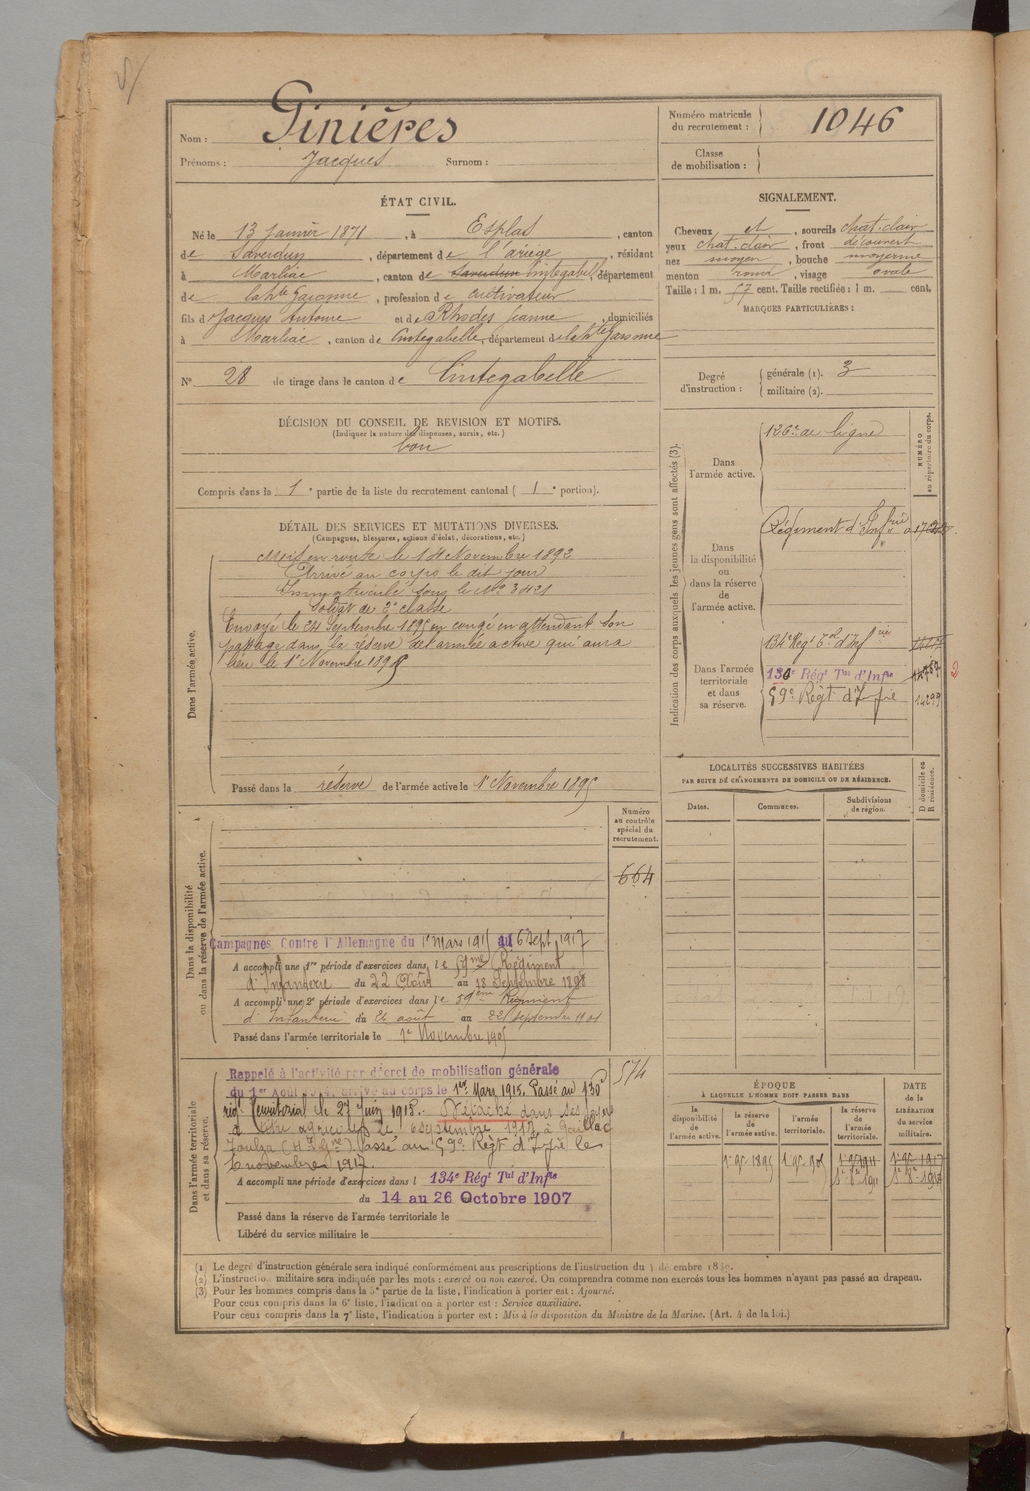 Nom : Ginières
Prénoms : Jacques Surnom :
Numéro matricule du recrutement : 1046
Classe de mobilisation :
ÉTAT CIVIL.
Né le 13 Janvier 1871, à Esplas, canton
de Saverdun, département de l'ariège, résidant
à Marliac, canton de Saverdun Cintegabelle, département
de la hte Garonne, profession de cultivateur
fils de Jacques Antoine et de Rhodes Jeanne, domiciliés
à Marliac, canton de Cintegabelle, département de la hte Garonne
N° 28 de tirage dans le canton de Cintegabelle
SIGNALEMENT.
Cheveux et, sourcils chat. clair
yeux chat. clair, front découvert
nez moyen, bouche moyenne
menton rond, visage ovale
Taille : 1 m. 57 cent. Taille rectifiée : 1 m. cent.
MARQUES PARTICULIÈRES :
Degré d'instruction : générale (1). 3
militaire (2).
DÉCISION DU CONSEIL DE REVISION ET MOTIFS.
(Indiquer la nature des dispenses, sursis, etc.)
bon
Compris dans la 1e partie de la liste du recrutement cantonal ( 1e portion).
DÉTAIL DES SERVICES ET MUTATIONS DIVERSES.
(Campagnes, blessures, actions d'éclat, décorations, etc.)
Dans l'armée active.
Mis en route le 14 Novembre 1892
Arrivé au corps le dit jour
Immatriculé sous le N° 3421
Soldat de 2e classe
Envoyé le 24 Septembre 1895 en congé en attendant son
passage dans la réserve de l'armée active qui aura
lieu le 1er Novembre 1895
Passé dans la réserve de l'armée active le 1er Novembre 1895
Indication des corps auxquels les jeunes gens sont affectés (3).
NUMÉRO au répertoire du corps.
Dans l'armée active.
126e de ligne
Dans la disponibilité ou dans la réserve de l'armée active.
Régiment d'Infrie
Dans l'armée territoriale et dans sa réserve.
134e Régt Tal d'Infrie
130e Régt Tal d'Infie
59e Régt d'Infrie 14299
2
LOCALITÉS SUCCESSIVES HABITÉES
PAR SUITE DE CHANGEMENTS DE DOMICILE OU DE RÉSIDENCE.
Dates. Communes. Subdivisions de région. D domicile ou R résidence.
Dans la disponibilité ou dans la réserve de l'armée active.
Numéro au contrôle spécial du recrutement.
664
Campagnes Contre l'Allemagne du 1er Mars 1915 au 6 Sept 1917
A accompli une 1re période d'exercices dans le 59me Régiment
d'Infanterie du 22 Août au 18 Septembre 1898
A accompli une 2e période d'exercices dans le 59ème Régiment
d'Infanterie du 26 août au 22 septembre 1901
Passé dans l'armée territoriale le 1er Novembre 1905
Dans l'armée territoriale et dans sa réserve.
574
Rappelé à l'activité par décret de mobilisation générale
du 1er Août arrivé au corps le 1er Mars 1915. Passé au 130e
rég Territorial le 27 Juin 1915. Détaché dans ses foyers
agriculteur le 6 septembre 1917 à Gaillac
Toulza (Hte Gne). Passé au 59e Régt d'Infie le
novembre 1917.
A accompli une période d'exercices dans l 134e Régt Tal d'Infie
du 14 au 26 Octobre 1907
Passé dans la réserve de l'armée territoriale le
Libéré du service militaire le
ÉPOQUE
À LAQUELLE L'HOMME DOIT PASSER DANS
la disponibilité de l'armée active. la réserve de l'armée active. l'armée territoriale. la réserve de l'armée territoriale.
DATE de la LIBÉRATION du service militaire.
1er 9e 1895 1er 9e 905 1er 9e 1911 1er 9e 1917
(1) Le degré d'instruction générale sera indiqué conformément aux prescriptions de l'instruction du
(2) L'instruction militaire sera indiquée par les mots : exercé ou non exercé. On comprendra comme non exercés tous les hommes n'ayant pas passé au drapeau.
(3) Pour les hommes compris dans la 5e partie de la liste, l'indication à porter est : Ajourné.
Pour ceux compris dans la 6e liste, l'indication à porter est : Service auxiliaire.
Pour ceux compris dans la 7e liste, l'indication à porter est : Mis à la disposition du Ministre de la Marine. (Art. 4 de la loi.)